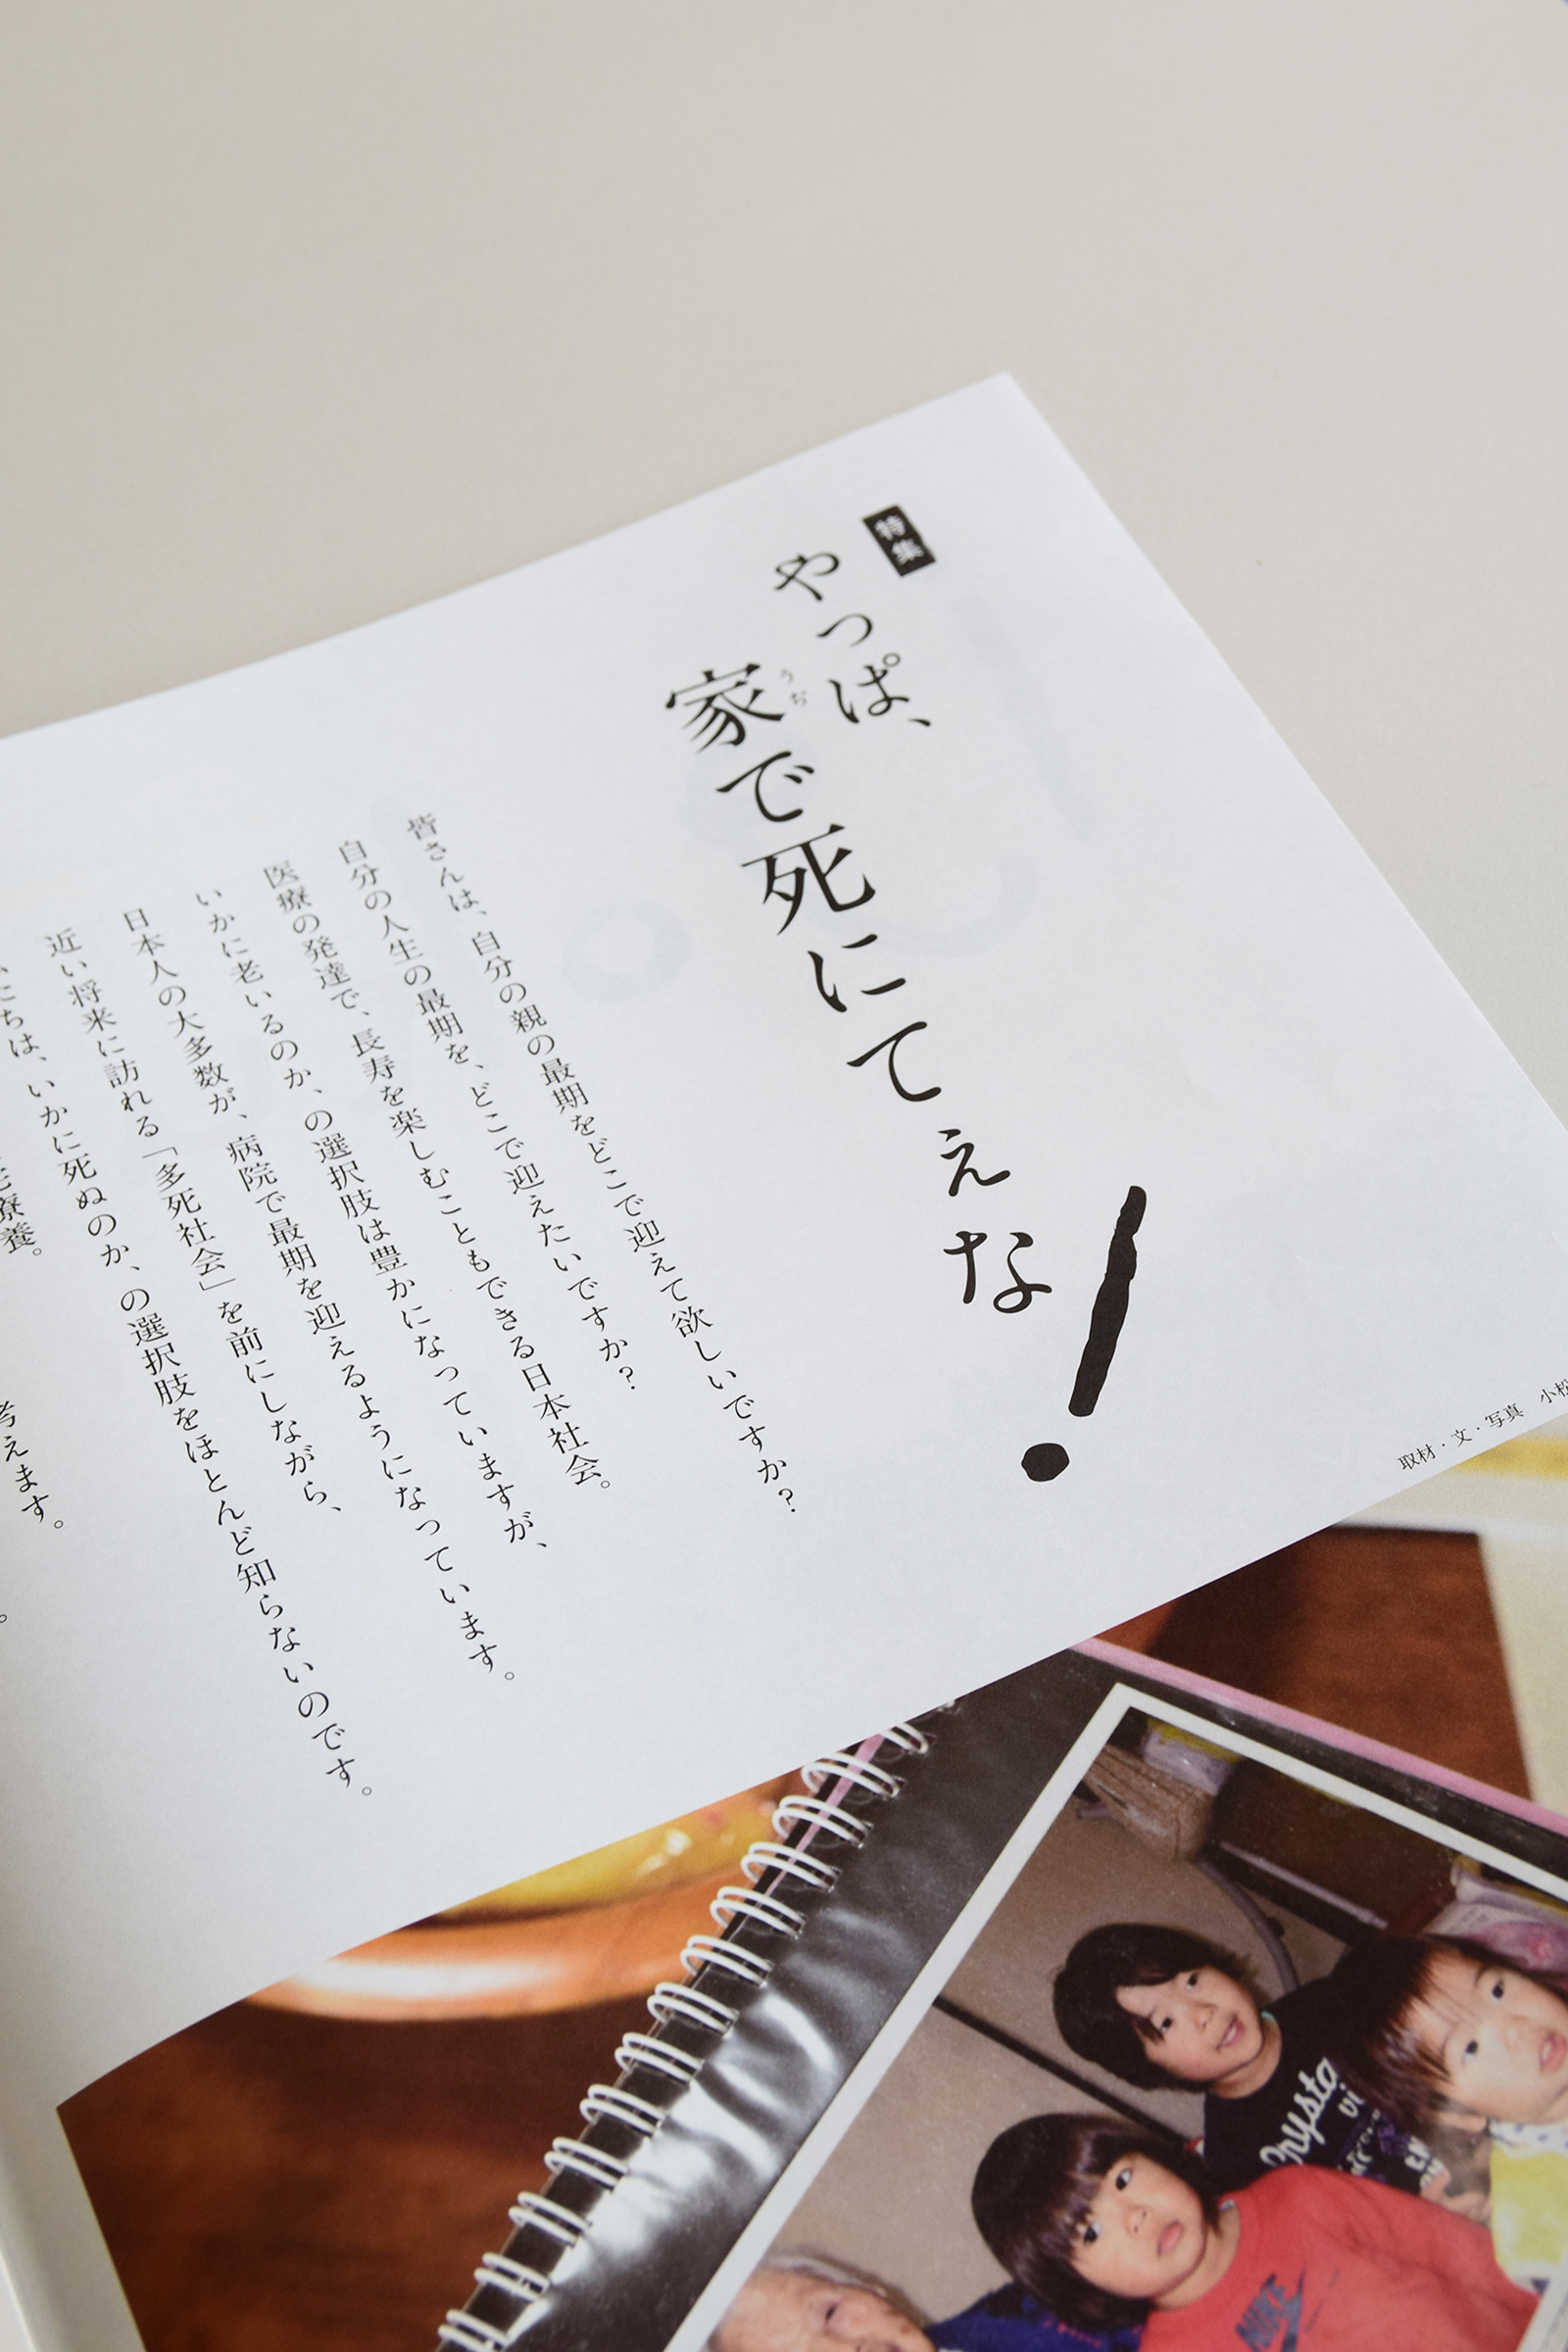 特集
やっぱ、
家で死にてぇな!
うぢ
取材・文・写真 小松
皆さんは、自分の親の最期をどこで迎えて欲しいですか?
自分の人生の最期を、どこで迎えたいですか?
医療の発達で、長寿を楽しむこともできる日本社会。
いかに老いるのか、の選択肢は豊かになっていますが、
日本人の大多数が、病院で最期を迎えるようになっています。
近い将来に訪れる「多死社会」を前にしながら、
たちは、いかに死ぬのか、の選択肢をほとんど知らないのです。
療養。
考えます。
NIKE